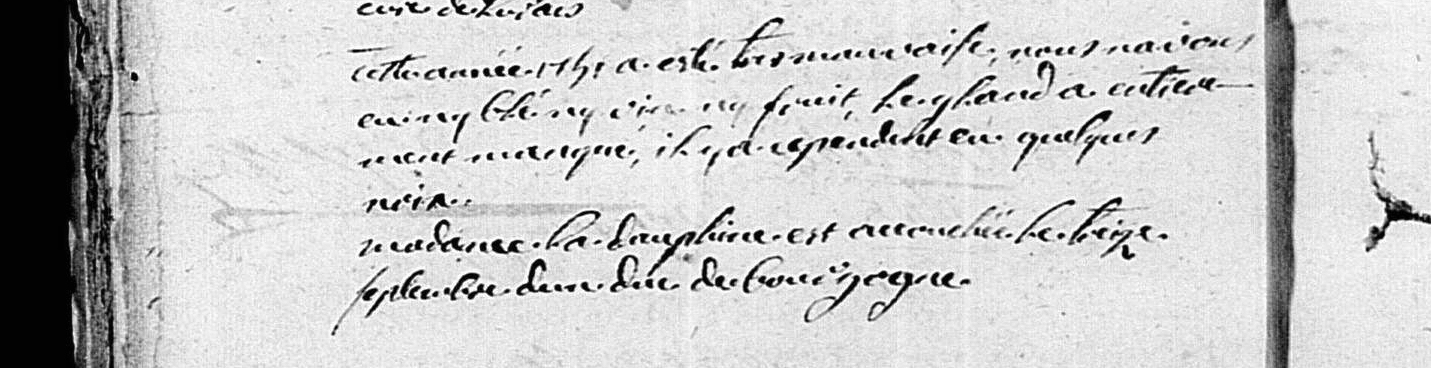 curé de
cette année 1751 a esté tres mauvaise, nous navons
eu ny blé ny vin ny fruit, le gland a entiere-
ment manqué, il y a cependent eu quelques
noix.
madame la dauphine est accouchée le treize
septembre dun duc de bourgogne.